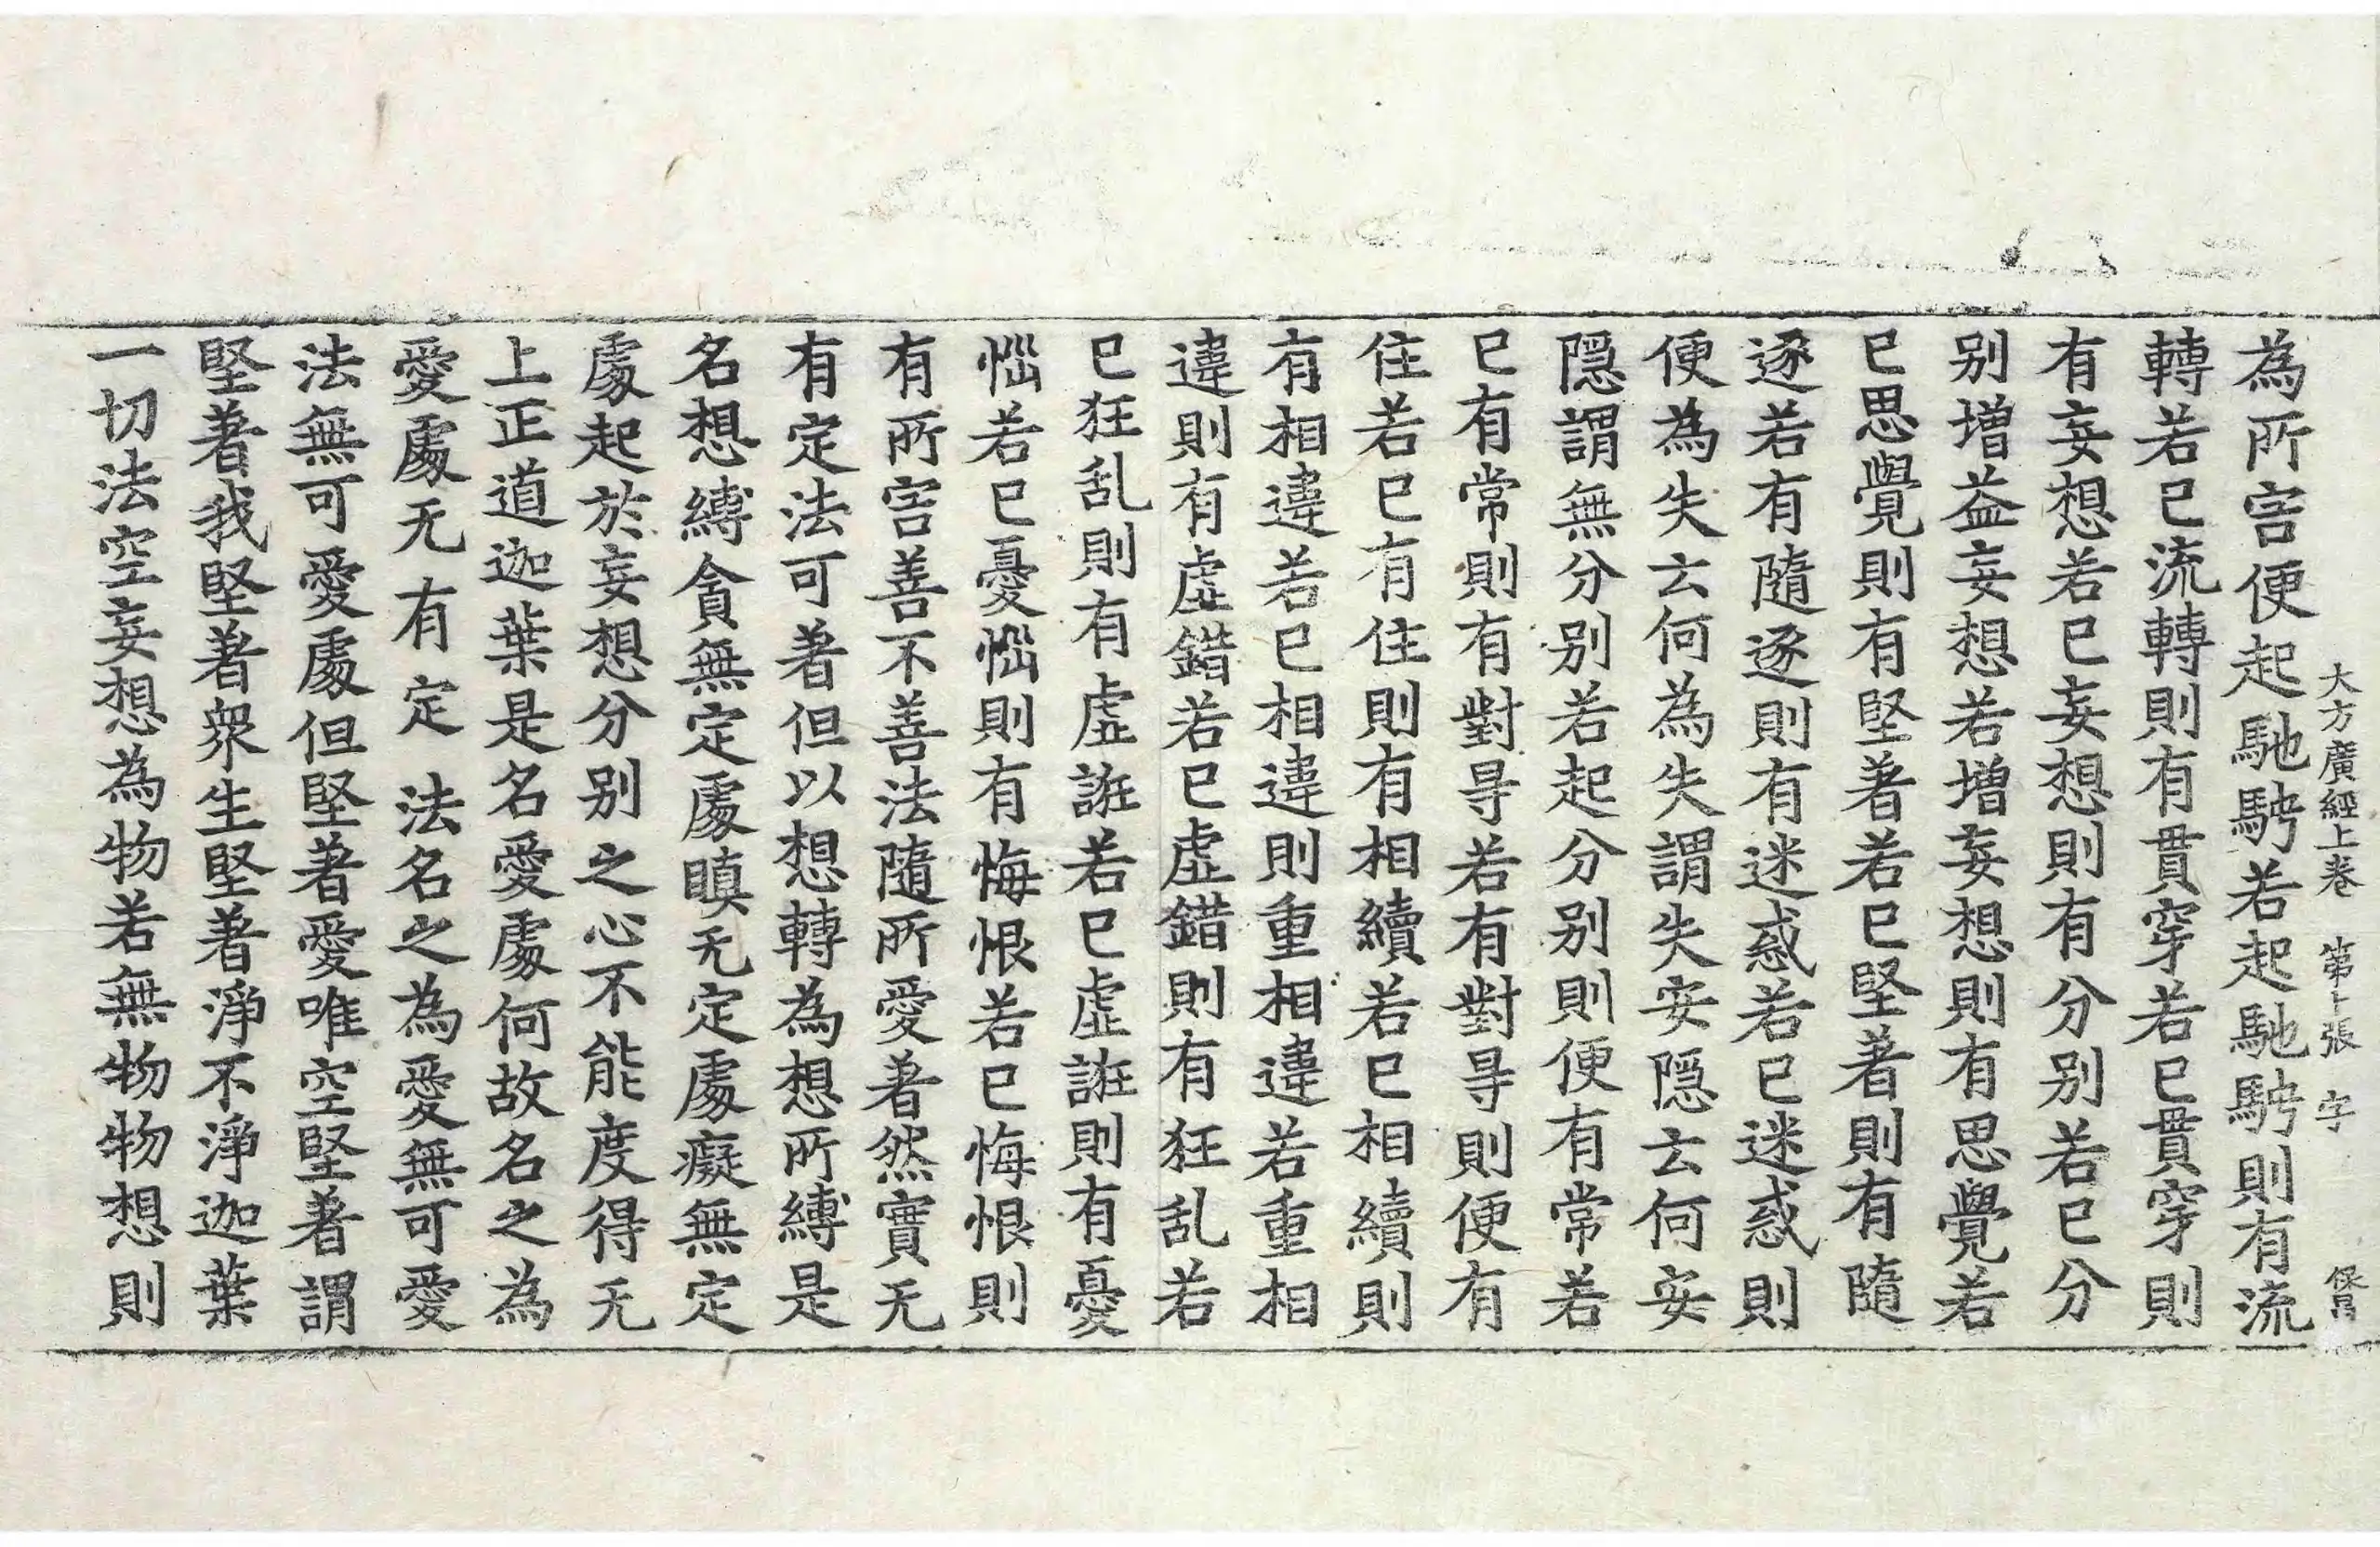 大方廣經上卷 第十張 字 保昌
為所害便起馳騁若起馳騁則有流
轉若已流轉則有貫穿若已貫穿則
有妄想若已妄想則有分別若已分
別增益妄想若增妄想則有思覺若
已思覺則有堅著若已堅著則有隨
逐若有隨逐則有迷惑若已迷惑則
便為失云何為失謂失安隱云何安
隱謂無分別若起分別則便有常若
已有常則有對㝵若有對㝵則便有
住若已有住則有相續若已相續則
有相違若已相違則重相違若重相
違則有虛錯若已虛錯則有狂乱若
已狂乱則有虛誑若已虛誑則有憂
惱若已憂惱則有悔恨若已悔恨則
有所害善不善法隨所愛著然實无
有定法可著但以想轉為想所縛是
名想縛貪無定處瞋无定處癡無定
處起於妄想分別之心不能度得无
上正道迦葉是名愛處何故名之為
愛處无有定法名之為愛無可愛
法無可愛處但堅著愛唯空堅著謂
堅著我堅著衆生堅著淨不淨迦葉
一切法空妄想為物若無物物想則